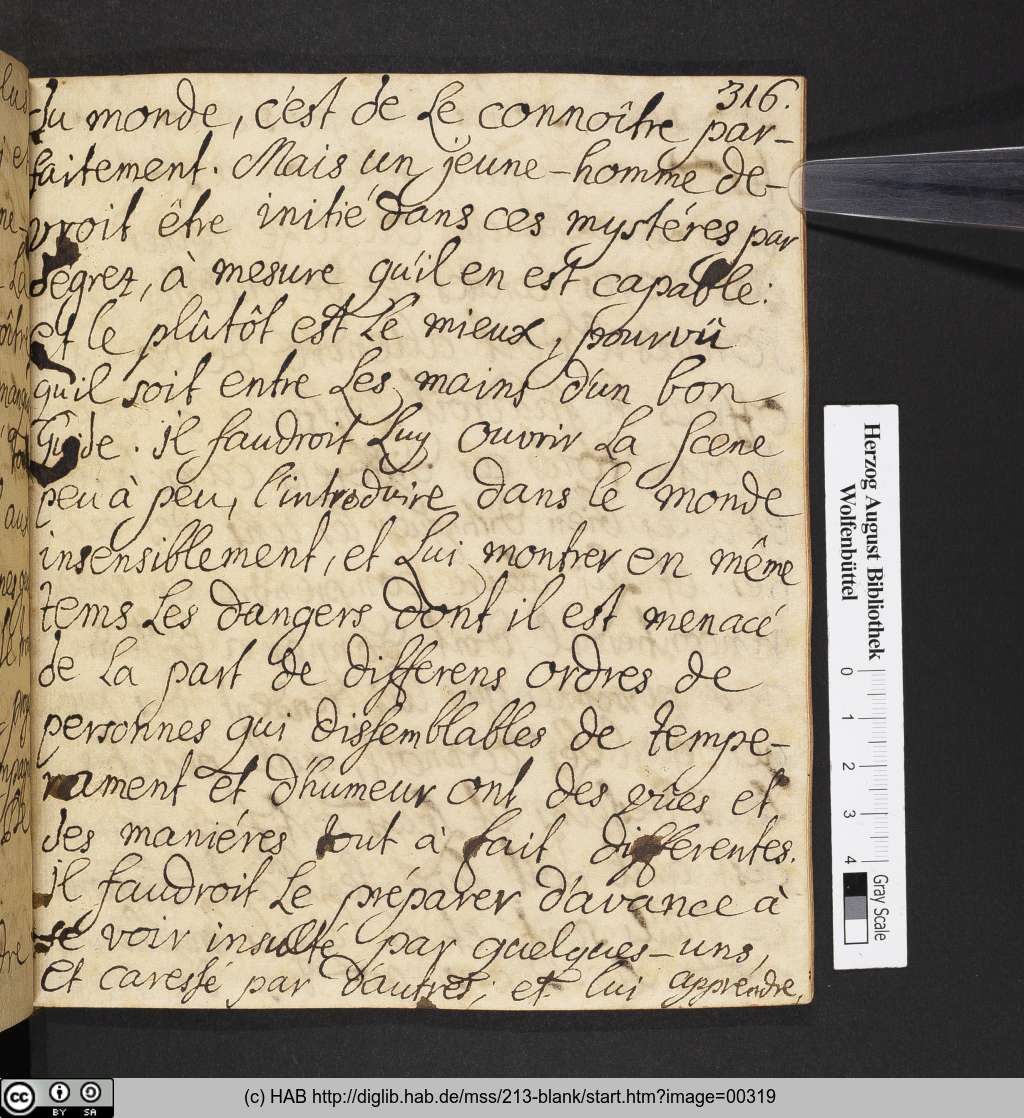 316.
du monde, c'est de le connoître par-
faitement. Mais un jeune-homme de-
vroit être initié dans ces mystéres par
degrez, à mesure qu'il en est capable:
et le plûtôt est le mieux, pourvû
qu'il soit entre les mains d'un bon
Guide. il faudroit Luy ouvrir la scene
peu à peu, l'introduire dans le monde
insensiblement, et Lui montrer en même
tems les dangers dont il est menacé
de la part de differens ordres de
personnes qui dissemblables de tempe-
rament et d'humeur ont des vûes et
des maniéres tout à fait differentes.
il faudroit le préparer d'avance à
se voir insulté par quelques-uns,
et caressé par d'autres; et lui apprendre,
Herzog August Bibliothek
Wolfenbüttel
0 1 2 3 4 Gray Scale
(c) HAB http://diglib.hab.de/mss/213-blank/start.htm?image=00319
cc BY SA